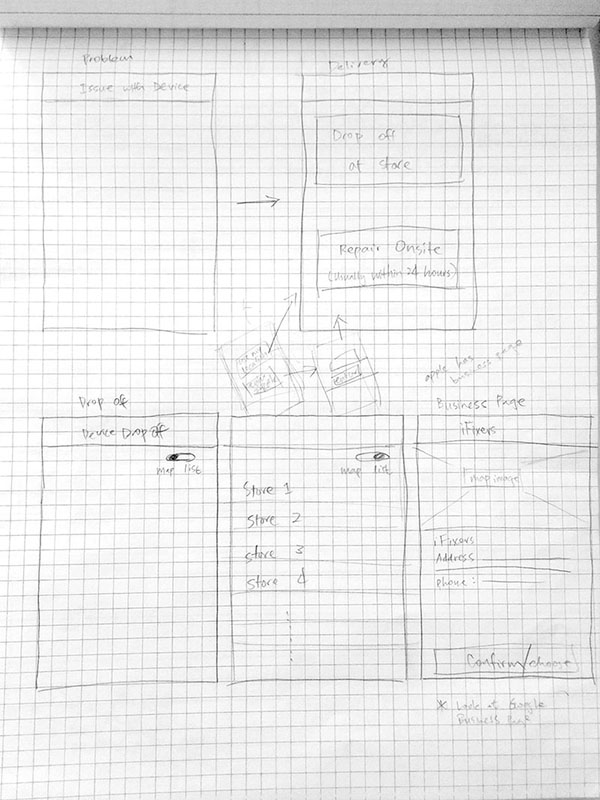 Problem
Issue with Device
Delivery
Drop off
at store
Repair Onsite
(Usually within 24 hours)
apple has
business page
Drop off
Device Drop off
map list
map list
Store 1
Store 2
Store 3
Store 4
Business Page
iFixers
map image
iFixers
Address
Phone:
Confirm/choose
* Look at Google
Business Page